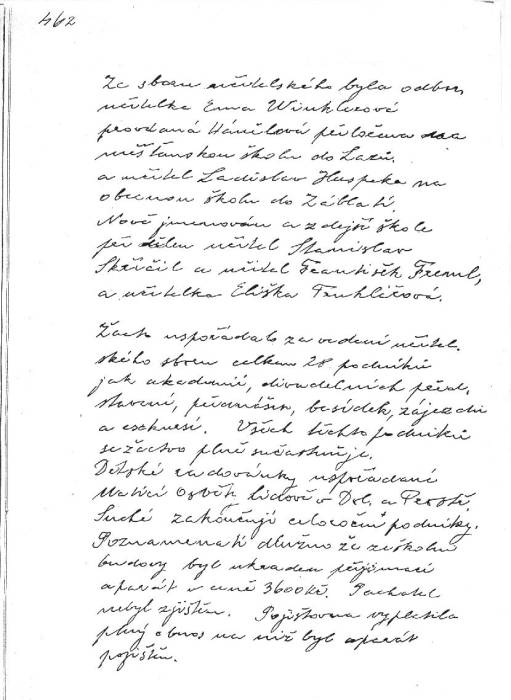 462
Ze sboru učitelského byla odbor.
učitelka Ema Winklerová
provdaná Háničlová přeložena na
měšťanskou školu do Lazů.
a učitel Ladislav Huspeka na
obecnou školu do Záblatí.
Nově jmenován a zdejší škole
přidělen učitel Stanislav
Skřičil a učitel František Freml,
a učitelka Eliška Truhličová.
Žact. uspořádalo za vedení učitel.
ského sboru celkem 28 podniků
jak akademií, divadelních před.
stavení, přednášek, besídek, zájezdů
a exkursí. Všech těchto podniků
se žactvo plně súčastňuje.
Dětské radovánky uspořádané
Maticí Osvěty Lidové v Dol. a Prostř.
Suché zakončují celoroční podniky.
Poznamenati dlužno že ze školní
budovy byl ukraden přijímací
aparát v ceně 3600 Kč. Pachatel
nebyl zjištěn. Pojišťovna vyplatila
plný obnos na niž byl aparát
pojištěn.